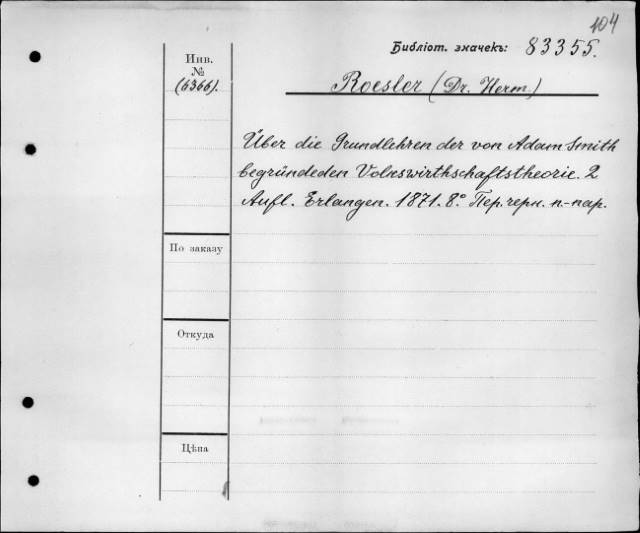 104
Библіот. значекъ: 83355.
Инв.
№
(6366).
Roesler (Dr. Herm.)
Über die Grundlehren der von Adam Smith
begründeden Volkswirthschaftstheorie. 2
Aufl. Erlangen. 1871. 8.° Пер. черн. п.-пар.
По заказу
Откуда
Цѣна